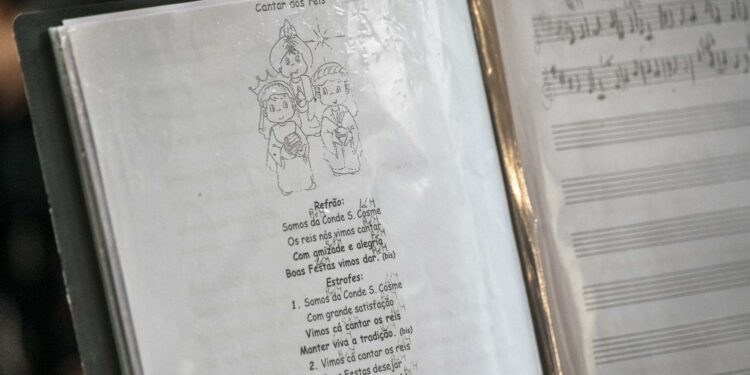 Cantar dos reis
Refrão:
Somos da Conde S. Cosme
Os reis nós vimos cantar
Com amizade e alegria
Boas Festas vimos dar. (bis)
Estrofes:
1. Somos da Conde S. Cosme
Com grande satisfação
Vimos cá cantar os reis
Manter viva a tradição. (bis)
2. Vimos cá cantar os reis
Festas desejar